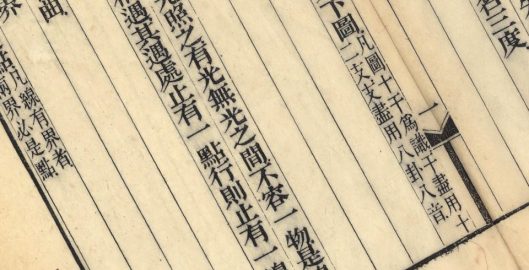 名三度
一
下圖凡圖十干為識干盡用十
二支支盡用八卦八音
光照之有光無光之間不容一物是
遇其遇處止有一點行則止有一
曲
界
凡線有界者
兩界必是點